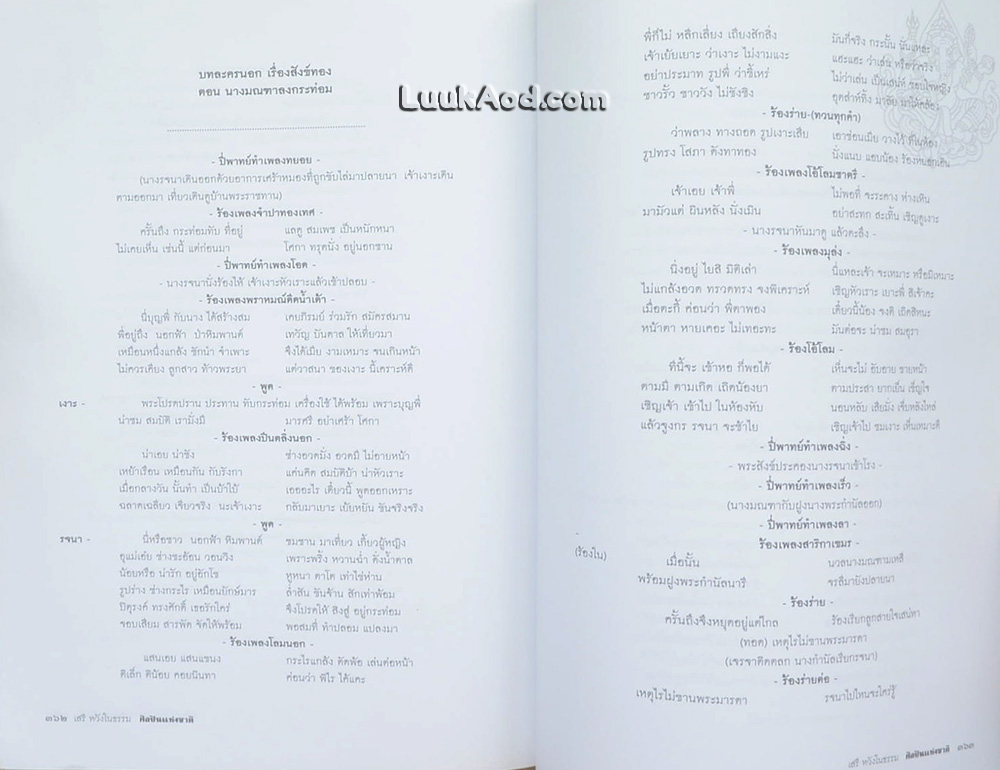 บทละครนอก เรื่องสังข์ทอง
ตอน นางมณฑาลงกระท่อม
LuukAod.com
- ปี่พาทย์ทำเพลงทยอย -
(นางรจนาเดินออกด้วยอาการเศร้าหมองที่ถูกขับไล่มาปลายนา เจ้าเงาะเดิน
ตามออกมา เที่ยวเดินดูบ้านพระราชทาน)
- ร้องเพลงจำปาทองเทศ -
ครั้นถึง กระท่อมทับ ที่อยู่ แลดู สมเพช เป็นหนักหนา
ไม่เคยเห็น เช่นนี้ แต่ก่อนมา โศกา ทรุดนั่ง อยู่นอกชาน
- ปี่พาทย์ทำเพลงโอด -
- นางรจนานั่งร้องไห้ เจ้าเงาะหัวเราะแล้วเข้าปลอบ -
- ร้องเพลงพราหมณ์ดีดน้ำเต้า -
นี่บุญพี่ กับนาง ได้สร้างสม เคยภิรมย์ ร่วมรัก สมัครสมาน
พี่อยู่ถึง นอกฟ้า ป่าหิมพานต์ เทวัญ บันดาล ให้เที่ยวมา
เหมือนหนึ่งแกล้ง ชักนำ จำเพาะ จึงได้เมีย งามเหมาะ จนเกินหน้า
ไม่ควรเคียง ลูกสาว ท้าวพระยา แต่วาสนา ของเงาะ นี้เคราะห์ดี
- พูด -
เงาะ - พระโปรดปราน ประทาน ทับกระท่อม เครื่องใช้ ได้พร้อม เพราะบุญพี่
น่าชม สมบัติ เรามั่งมี มารศรี อย่าเศร้า โศกา
- ร้องเพลงปีนตลิ่งนอก -
น่าเอย น่าชัง ช่างอวดมั่ง อวดมี ไม่อายหน้า
เหย้าเรือน เหมือนกัน กับรังกา แค่นคิด สมบัติบ้า น่าหัวเราะ
เมื่อกลางวัน นั้นทำ เป็นบ้าใบ้ เออะไร เดี๋ยวนี้ พูดออกเหราะ
ฉลาดเฉลียว เจียวจริง นะเจ้าเงาะ กลับมาเยาะ เย้ยหยัน ขันจริงจริง
- พูด -
รจนา - นี่หรือชาว นอกฟ้า หิมพานต์ ซมซาน มาเที่ยว เกี้ยวผู้หญิง
อุแม่เอ๋ย ช่างชะอ้อน วอนวิง เพราะพริ้ง หวานฉ่ำ ดั่งน้ำตาล
น้อยหรือ น่ารัก อยู่อักโข หูหนา ตาโต เท่าไข่ห่าน
รูปร่าง ช่างกระไร เหมือนยักษ์มาร ล่ำสัน ขันจ้าน สักเท่าพ้อม
ปิตุรงค์ ทรงศักดิ์ เธอรักใคร่ จึงโปรดให้ สิงสู่ อยู่กระท่อม
ชอบเสียม สารพัด จัดให้พร้อม พอสมที่ ทำปลอม แปลงมา
- ร้องเพลงโลมนอก -
แสนเอย แสนแขนง กระไรแกล้ง ตัดพ้อ เล่นต่อหน้า
ติเล็ก ติน้อย คอยนินทา ค่อนว่า พิไร ได้แคะ
๓๖๒ เสรี หวังในธรรม ศิลปินแห่งชาติ
พี่ก็ไม่ หลีกเลี่ยง เถียงสักสิ่ง มันก็จริง กระนั้น นั่นแหละ
เจ้าเย้ยเยาะ ว่าเงาะ ไม่งามแงะ แฮะแฮะ ว่าเล่น หรือว่าจริง
อย่าประมาท รูปพี่ ว่าขี้เหร่ ไม่ว่าเล่น เป็นเสน่ห์ ชอบใจหญิง
ชาวรั้ว ชาววัง ไม่ชังชิง
- ร้องร่าย-(ทวนทุกคำ)
ว่าพลาง ทางถอด รูปเงาะเสีย เอาซ่อนเมีย วางไว้ ที่ในห้อง
รูปทรง โสภา ดังทาทอง นั่งแนบ แอบน้อง
- ร้องเพลงโอ้โลมชาตรี -
เจ้าเอย เจ้าพี่ ไม่พอที่ จะระคาง ห่างเหิน
มามัวแต่ ผินหลัง นั่งเมิน อย่าสะทก สะเทิ้น เชิญดูเงาะ
- นางรจนาหันมาดู แล้วตะลึง -
- ร้องเพลงมุล่ง -
นิ่งอยู่ ไยสิ มิติเล่า นี่แหละเจ้า จะเหมาะ หรือมิเหมาะ
ไม่แกล้งอวด ทรวดทรง จงพิเคราะห์ เชิญหัวเราะ เยาะพี่ สิเจ้าคะ
เมื่อตะกี้ ค่อนว่า พี่ตาพอง เดี๋ยวนี้น้อง จงติ เถิดสิหนะ
หน้าตา หายเคอะ ไม่เทอะทะ มันต่อจะ น่าชม สมอุรา
- ร้องโอ้โลม -
ทีนี้จะ เข้าหอ ก็พอได้ เห็นจะไม่ อับอาย ขายหน้า
ตามมี ตามเกิด เถิดน้องยา ตามประสา ยากเย็น เข็ญใจ
เชิญเจ้า เข้าไป ในห้องหับ นอนหลับ เสียมั่ง เซื่องหลังใหล่
แล้วจูงกร รจนา จะช้าไย เชิญเจ้าไป ชมเงาะ เห็นเหมาะดี
- ปี่พาทย์ทำเพลงฉิ่ง -
- พระสังข์ประคองนางรจนาเข้าโรง -
- ปี่พาทย์ทำเพลงเร็ว -
(นางมณฑากับฝูงนางพระกำนัลออก)
- ปี่พาทย์ทำเพลงลา -
ร้องเพลงสาริกาเขมร -
(ร้องใน) เมื่อนั้น นวลนางมณฑามเหสี
พร้อมฝูงพระกำนัลนารี จรลีมายังปลายนา
- ร้องร่าย -
ครั้นถึงจึงหยุดอยู่แต่ไกล ร้องเรียกลูกสายใจเสน่หา
(ทอด) เหตุไรไม่ขานพระมารดา
(เจรจาติดตลก นางกำนัลเรียกรจนา)
- ร้องร่ายต่อ -
เหตุไรไม่ขานพระมารดา รจนาไปไหนจะใคร่รู้
เสรี หวังในธรรม ศิลปินแห่งชาติ ๓๖๓